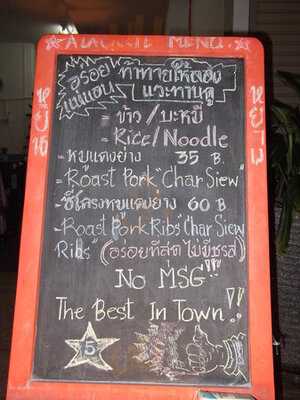 A LA CARTE MENU
อร่อย
แน่นอน
ท้าทายให้ลอง
แวะทานดู
= ข้าว / บะหมี่
= Rice / Noodle
- หมูแดงย่าง 35 B.
- Roast Pork "Char Siew"
- ซี่โครงหมูแดงย่าง 60 B
- Roast Pork Ribs "Char Siew
Ribs" (อร่อยที่สุด ไม่มีชูรส)
No MSG!!!
The Best In Town!!
5